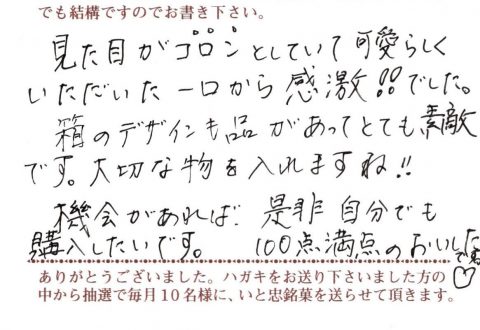 でも結構ですのでお書き下さい。
見た目がコロンとしていて可愛らしく
いただいた一口から感激!!でした。
箱のデザインも品があってとても素敵
です。大切な物を入れますね!!
機会があれば 是非自分でも
購入したいです。 100点満点のおいしさ
でした♡
ありがとうございました。ハガキをお送り下さいました方の
中から抽選で毎月10名様に、いと忠銘菓を送らせて頂きます。